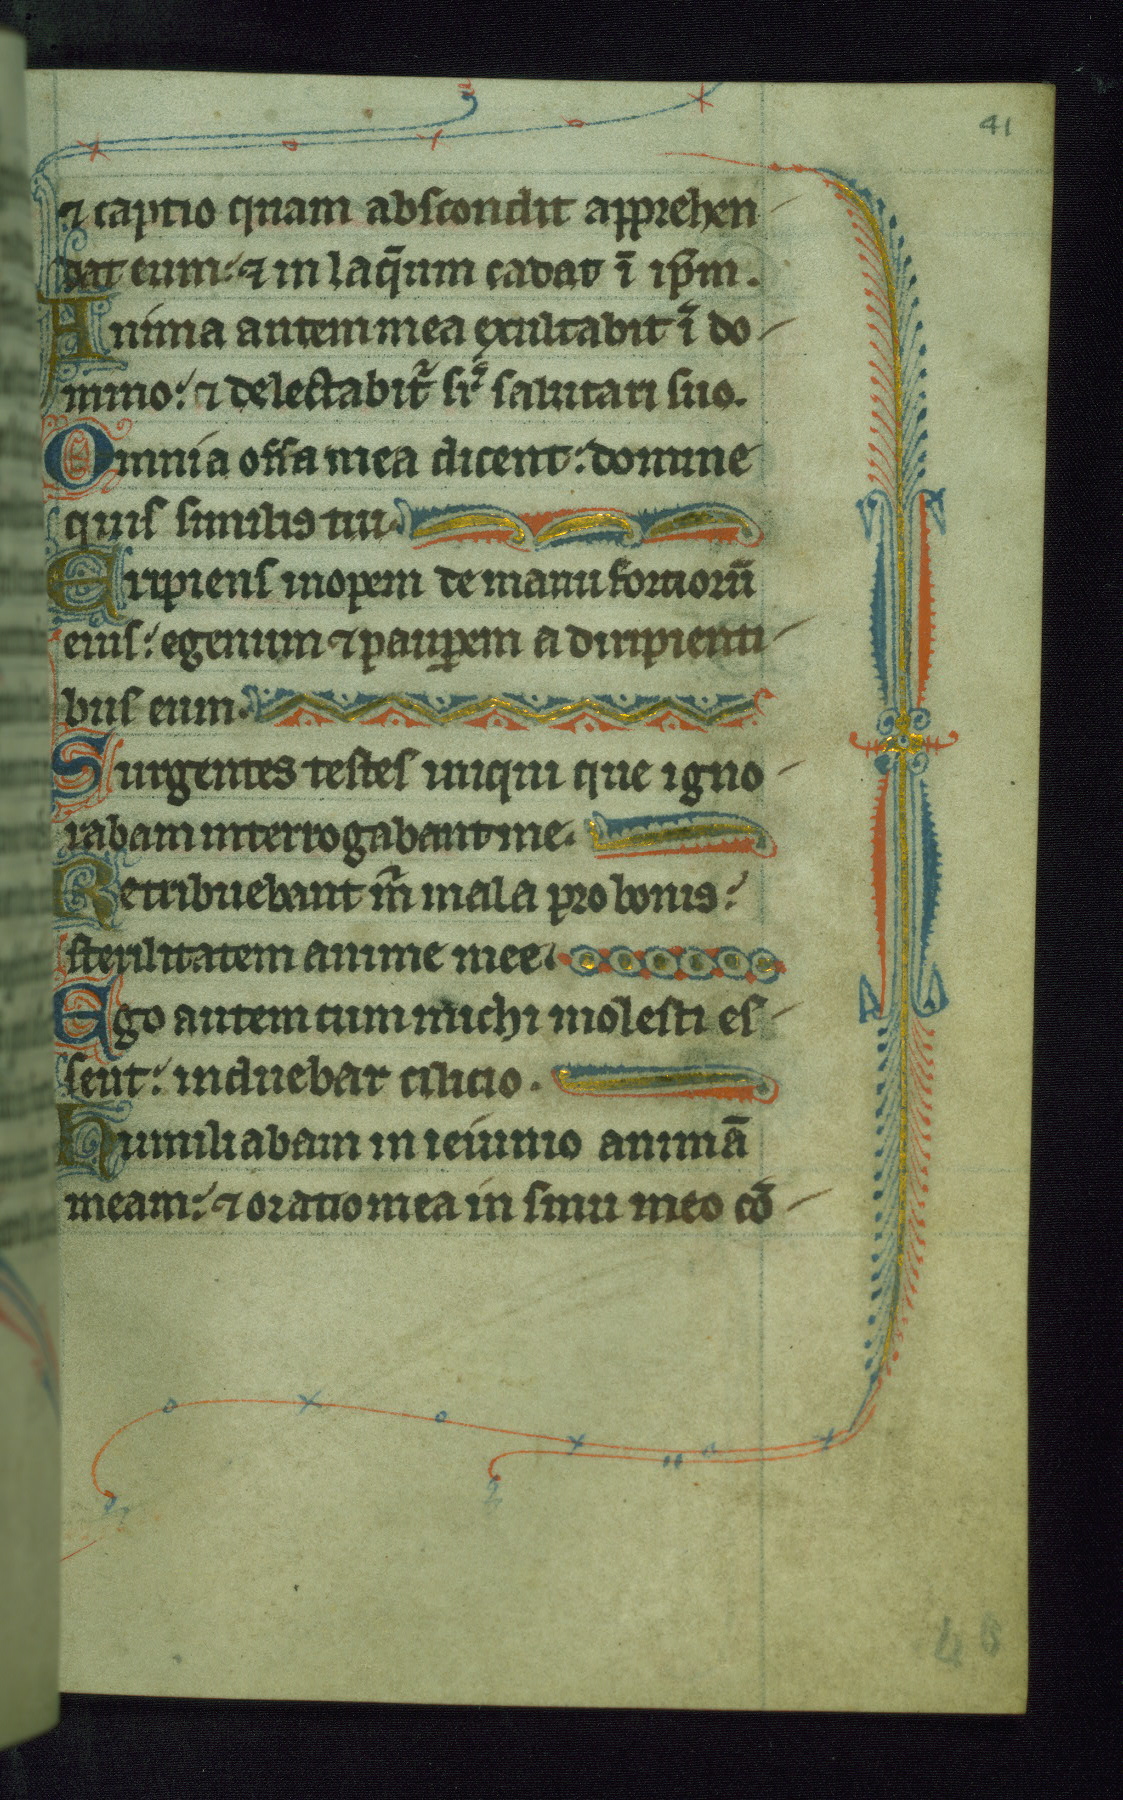 41
⁊ captio quam abscondit apprehen
dat eum: ⁊ in laq̄um cadat ī ip̄m.
Anima autem mea exultabit ī do
mino: ⁊ delectabit᷑ sr̄ salutari suo.
Omnia ossa mea dicent: domine
quis similis tui.
Eripiens inopem de manu fortiorū
eius: egenum ⁊ pauꝑem a diripienti
bus eum.
Surgentes testes iniqui que igno
rabam interrogabant me.
Retribuebant m̄ mala pro bonis:
sterilitatem anime mee.
Ego autem cum michi molesti es
sent: induebar cilicio.
Humiliabam in ieiunio animā
meam: ⁊ oratio mea in sinu meo cō